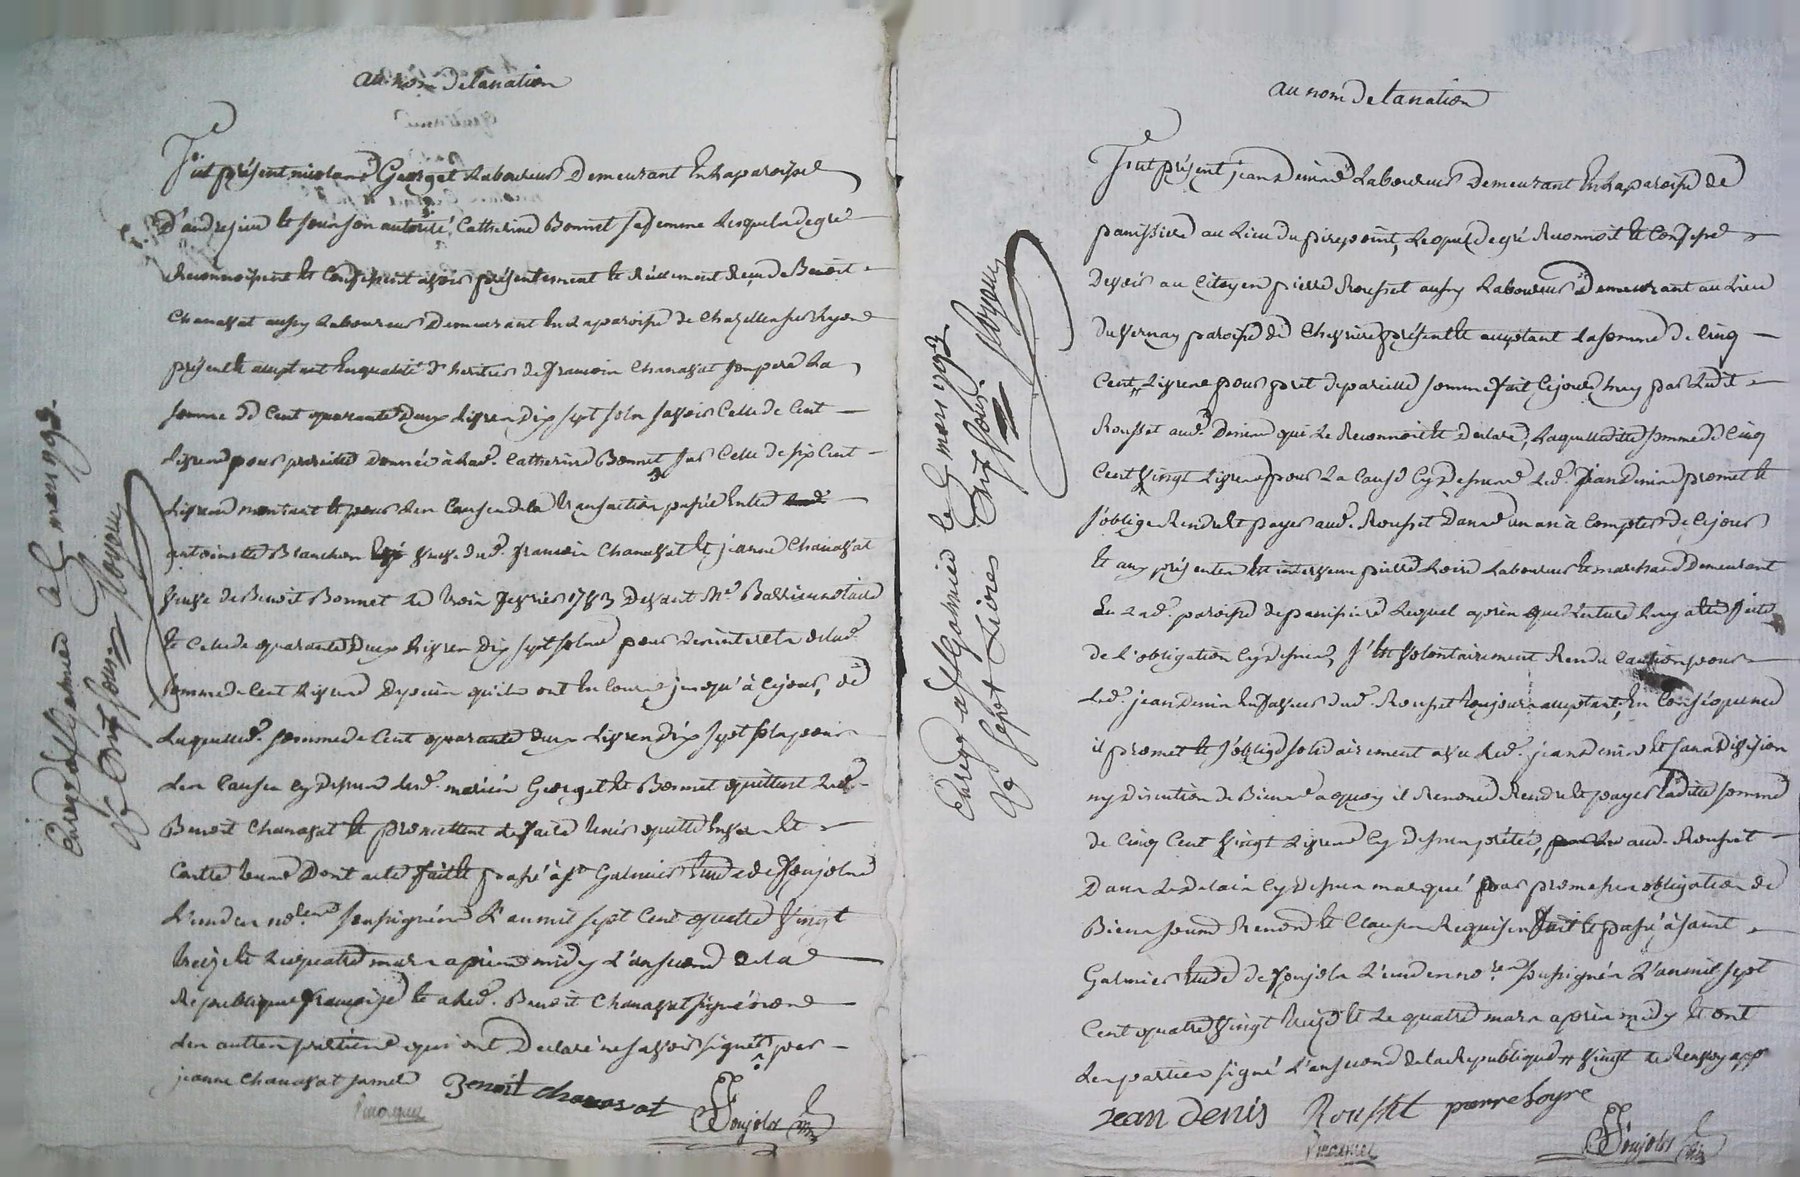 au nom de la nation
Fut présent Georget Laboureur Demeurant En La paroisse
D'andresieu et sous son autorité, Catherine Bonnet sa femme Lesquels de gré
Reconnoissent et Confessent avoir présentement et Réellement Reçu de Benoit
Chanavat aussy Laboureur Demeurant En La paroisse de Chazelles sur Lyon
présent et acceptant En qualité d'heritier de françois Chanavat son pere La
somme de Cent quarante Deux Livres Dix sept sols savoir Celle de Cent
Livres pour pareille donnée à Lad. Catherine Bonnet sur Celle de six Cent
Livres montant et pour Les Causes de la transaction passée Entre
antoinette Blanchon veuve dud. françois Chanavat et jeanne Chanavat
veuve de Benoit Bonnet Le trois fevrier 1783 Devant Me. Barrieu notaire
et Celle de quarante Deux Livres Dix sept sols pour Les interets de lad.
somme de Cent Livres Depuis qu'ils ont En Cours jusqu'à Ce jour, de
Laquelle d. somme de Cent quarante deux Livres Dix sept sols pour
Les Causes Cy Dessus Lesd. mariés Georget et Bonnet quittent Led.
Benoit Chanavat et promettent de faire tenir quitte Envers et
Contre tous Dont acte fait et passé à St Galmier Etude de Poujolas
L'un des nores. soussignés L'an mil sept Cent quatre vingt
treize et Le quatre mars après midy L'an second de La
Republique françoise et a Led. Benoit Chanavat signé non
Les autres parties qui ont Declaré ne savoir signer
jeanne Chanavat
Benoit chanavat
Poujolas
Enregé à St Galmier le 5 mars 1793.
Reçu Vingt sous
au nom de la nation
Fut présent jean Denis Laboureur Demeurant En La paroisse de
panissiere au Lieu du Lequel de gré Reconnoit et Confesse
Devoir au Citoyen pierre Rousset aussy Laboureur Demeurant au Lieu
du vernay paroisse de Chevrieres présent et acceptant La somme de Cinq
Cent Livres pour pret de pareille somme fait Ce jourd'huy par Ledit
Rousset aud. Denis qui Le Reconnoit et Declare, Laquelle ditte somme de Cinq
Cent vingt Livres pour La Cause Cy Dessus Led. jean Denis promet et
s'oblige Rendre et payer aud. Rousset Dans un an à Compter de Ce jour
Et aux présentes Est intervenu pierre Loire Laboureur et marchand Demeurant
En Lad. paroisse de panissiere Lequel après que Lecture Luy a été faite
de L'obligation Cy Dessus, s'est volontairement Rendu Caution pour
Led. jean Denis En faveur dud. Rousset toujours acceptant, En Conséquence
il promet et s'oblige solidairement avec Led. jean Denis et sans Division
ny discution de Biens a quoy il Renonce Rendre et payer Laditte somme
de Cinq Cent vingt Livres Cy Dessus pretée, aud. Rousset
Dans Le delais Cy Dessus marqué par promesses obligation de
Biens soumis Renon et Clauses Requises fait et passé à saint
Galmier Etude de Poujolas L'un des nores. soussignés L'an mil sept
Cent quatre vingt treize et Le quatre mars après midy Et ont
Les parties signé L'an second de La Republique vingt de Renvoy app
jean denis Rousset pierre Loyre
Poujolas
Enregé à St Galmier le 5 mars 1793
Reçu Sept Livres